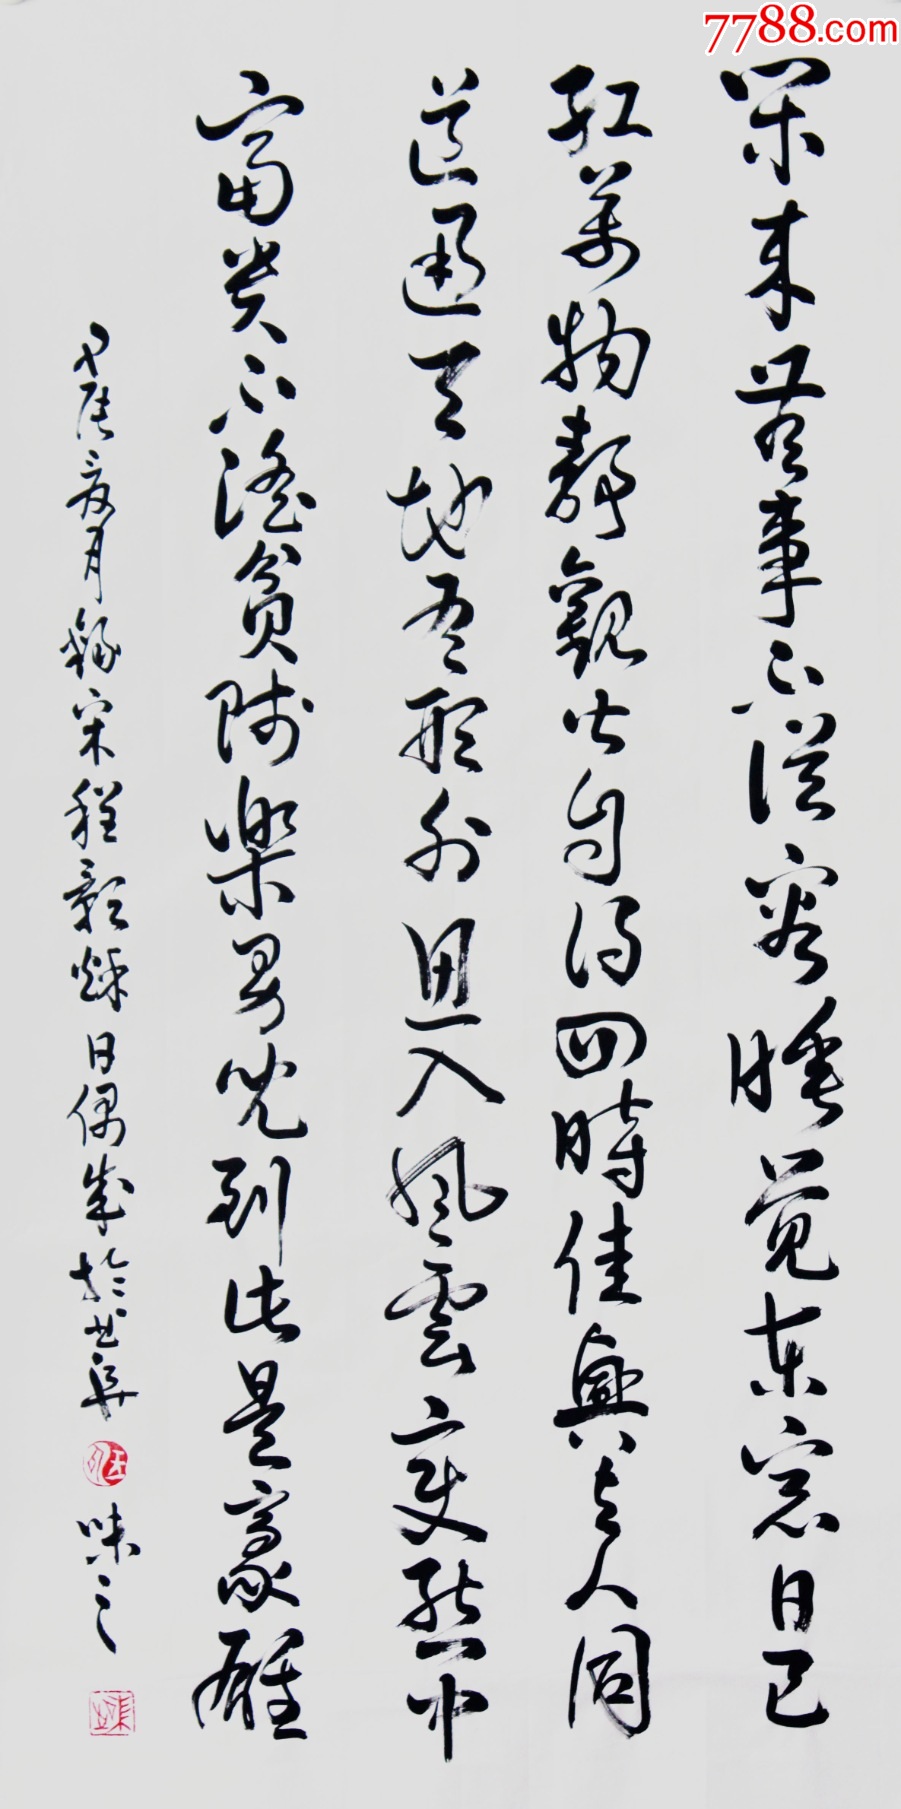 7788.com
閑来無事不從容睡覺東窓日已
紅萬物静觀皆自得四時佳興與人同
道通天地有形外思入風雲變態中
富貴不淫貧賤樂男兒到此是豪雄
夏月錄宋程顥秋日偶成於曲阜
味之